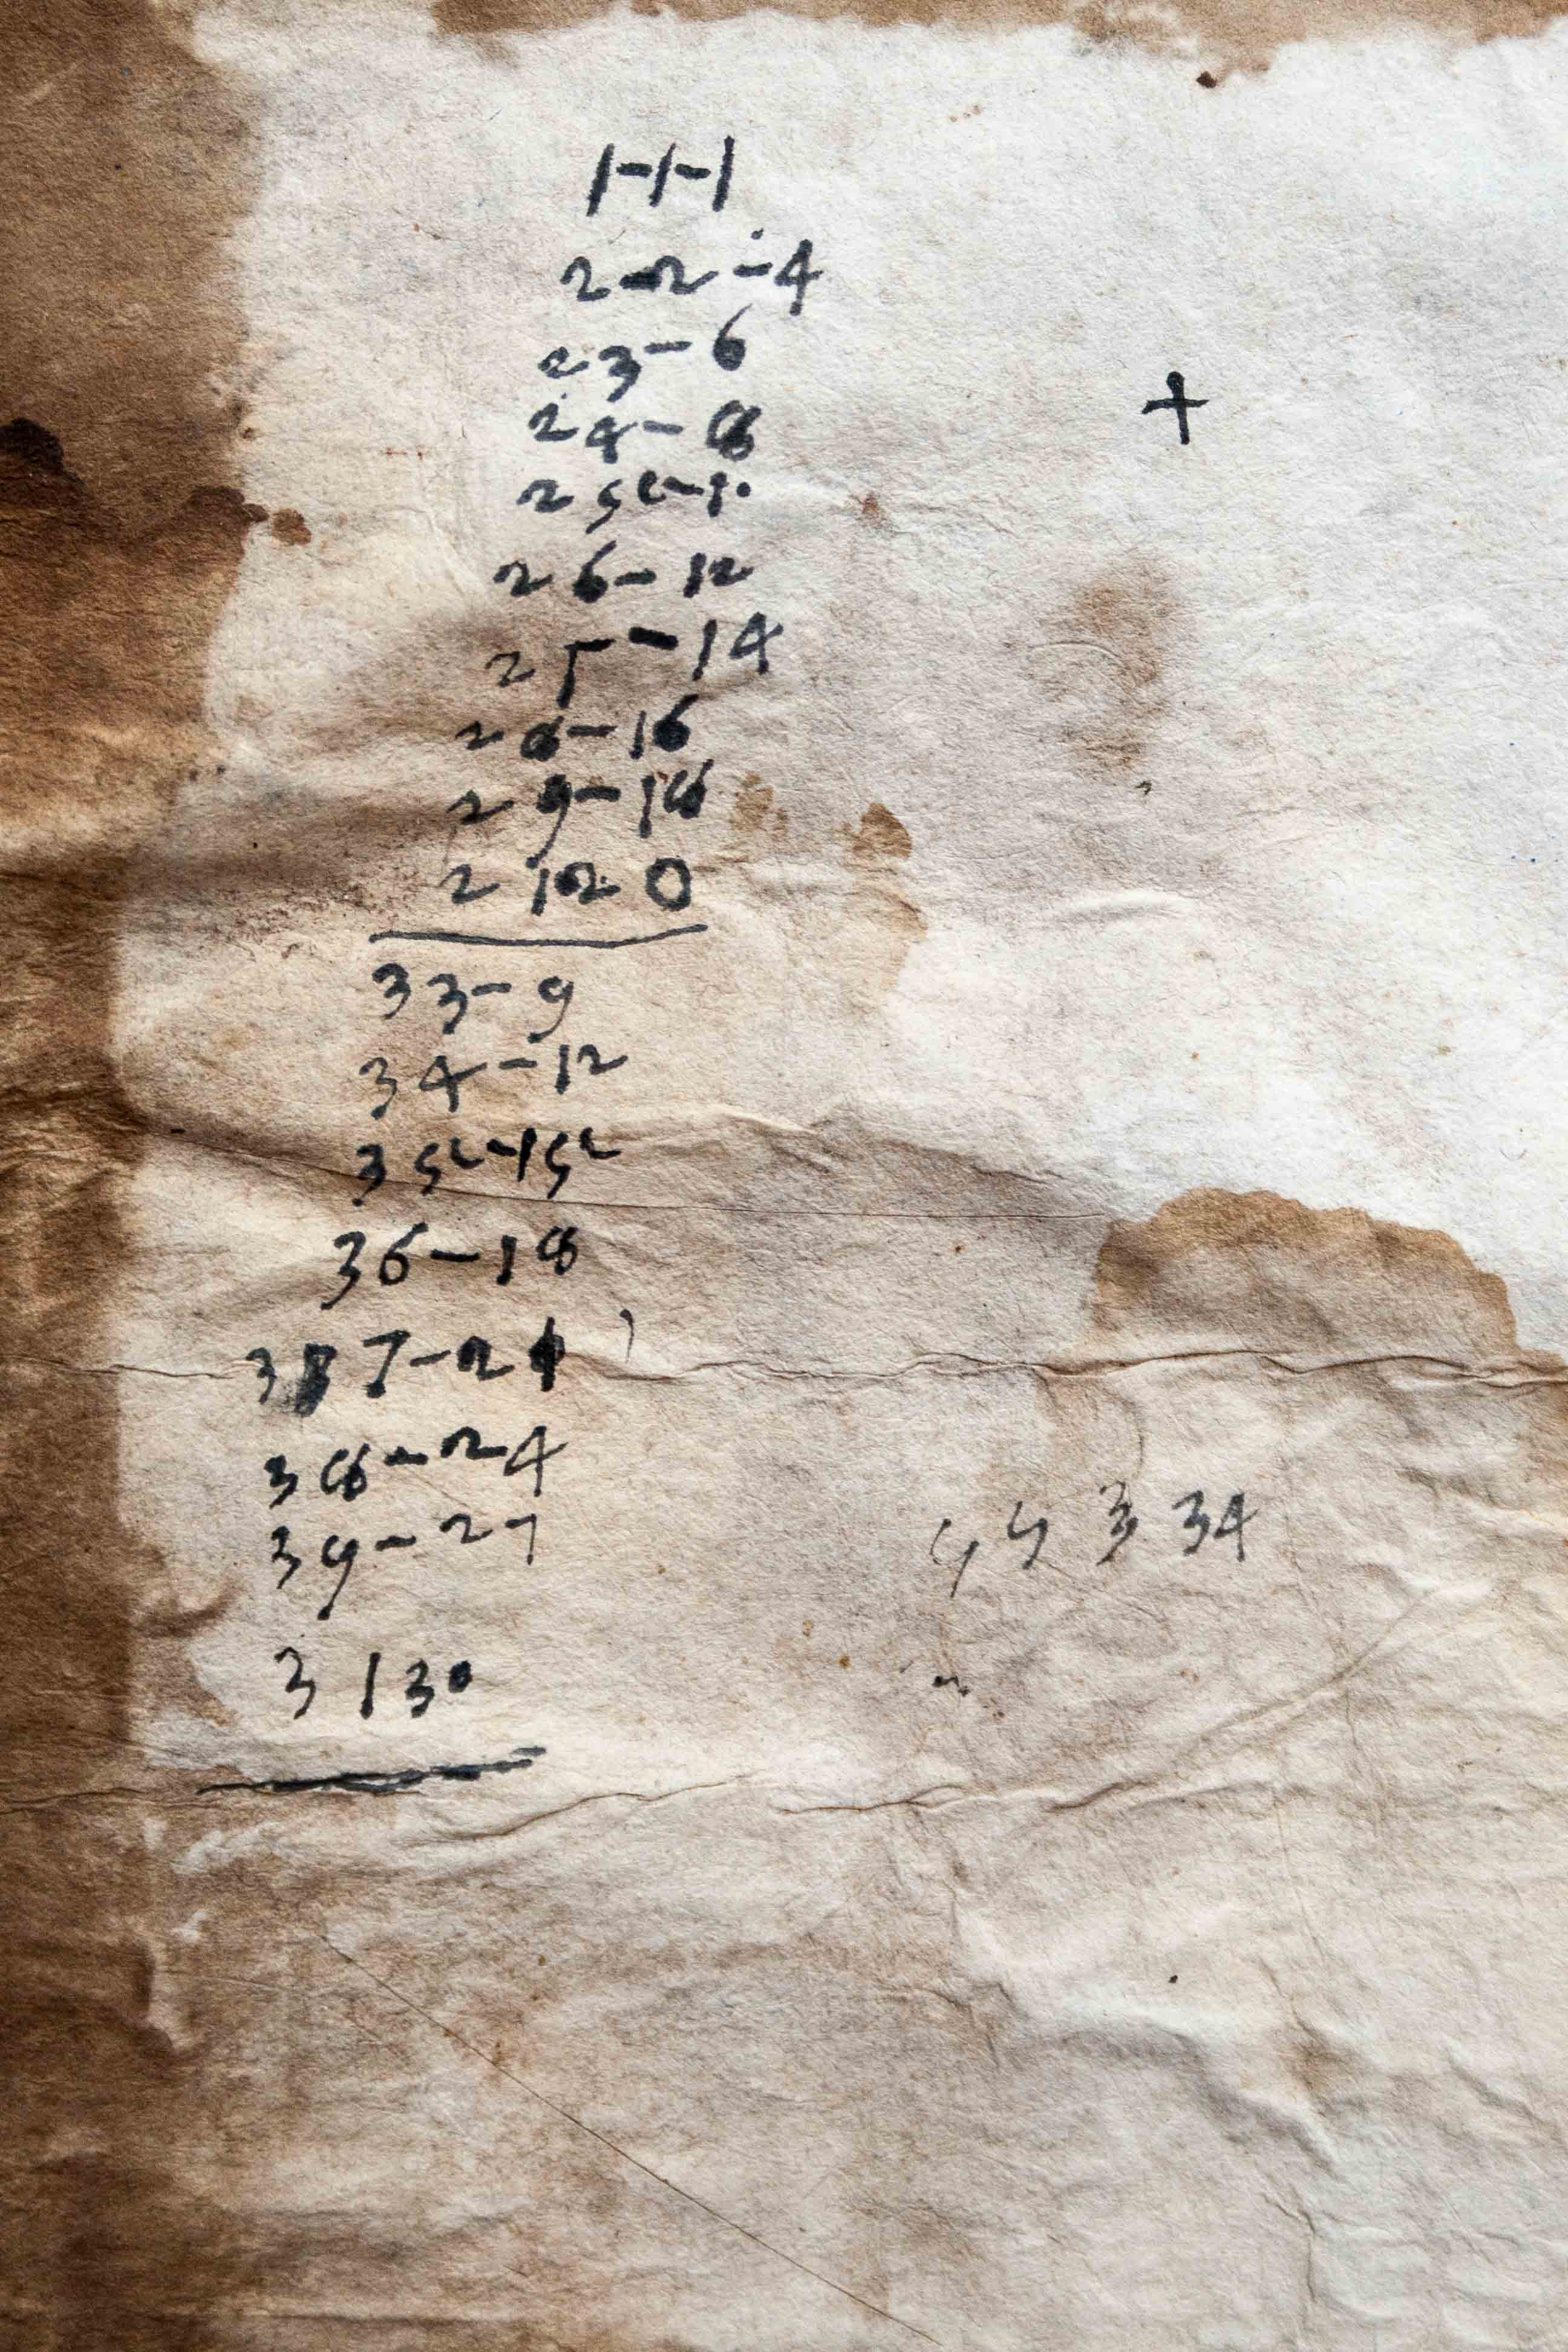 1-1-1
2-2-4
2 3-6
+
2 4-8
2 5-10
2 6-12
2 7-14
2 8-16
2 9-18
2 1 2 0
3 3-9
3 4-12
3 5-15
3 6-18
3 7-21
3 8-24
3 9-27
3 34
3 1 3 0